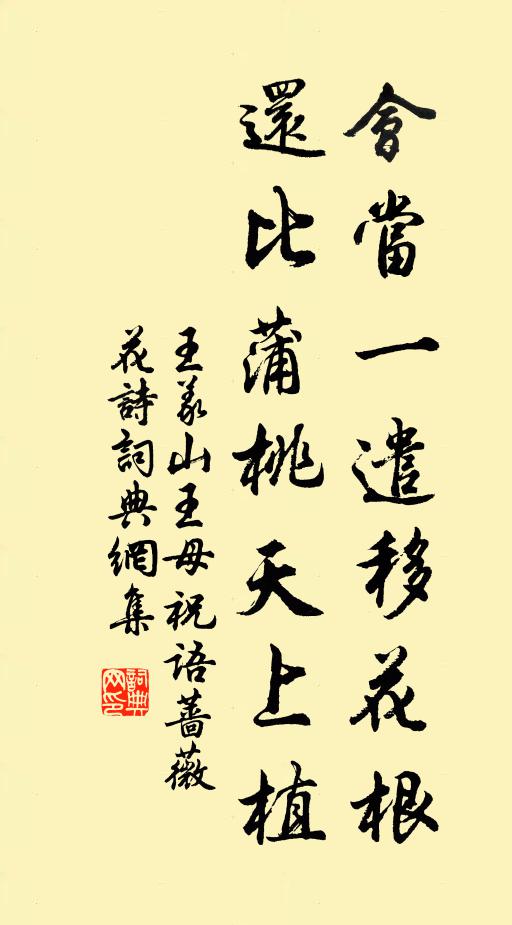 會當一遣移花根
還比蒲桃天上植
王義山王母祝语薔薇
花詩詞典網集
詞典網印